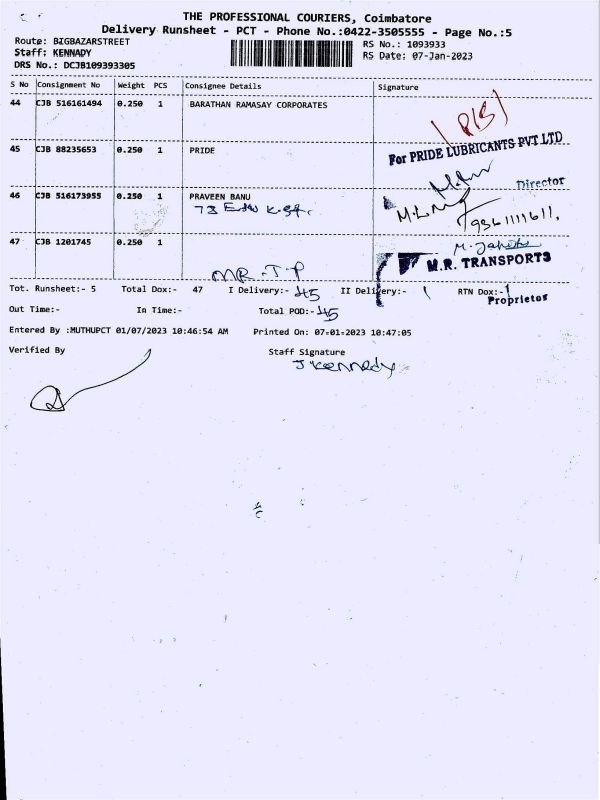 THE PROFESSIONAL COURIERS, Coimbatore
Delivery Runsheet - PCT - Phone No.:0422-3505555 - Page No.:5
Route: BIGBAZARSTREET
Staff: KENNADY
DRS No.: DCJB109393305
RS No.: 1093933
RS Date: 07-Jan-2023
S No Consignment No Weight PCS Consignee Details Signature
44 CJB 516161494 0.250 1 BARATHAN RAMASAY CORPORATES
45 CJB 88235653 0.250 1 PRIDE
For PRIDE LUBRICANTS PVT LTD
Director
46 CJB 516173955 0.250 1 PRAVEEN BANU
73
9361111611,
47 CJB 1201745 0.250 1
MR. T.P
M.R. TRANSPORTS
Proprietor
Tot. Runsheet:- 5 Total Dox:- 47 I Delivery:- 45 II Delivery:- 1 RTN Dox:- 1
Out Time:- In Time:- Total POD:- 45
Entered By :MUTHUPCT 01/07/2023 10:46:54 AM Printed On: 07-01-2023 10:47:05
Verified By Staff Signature
J Kennedy